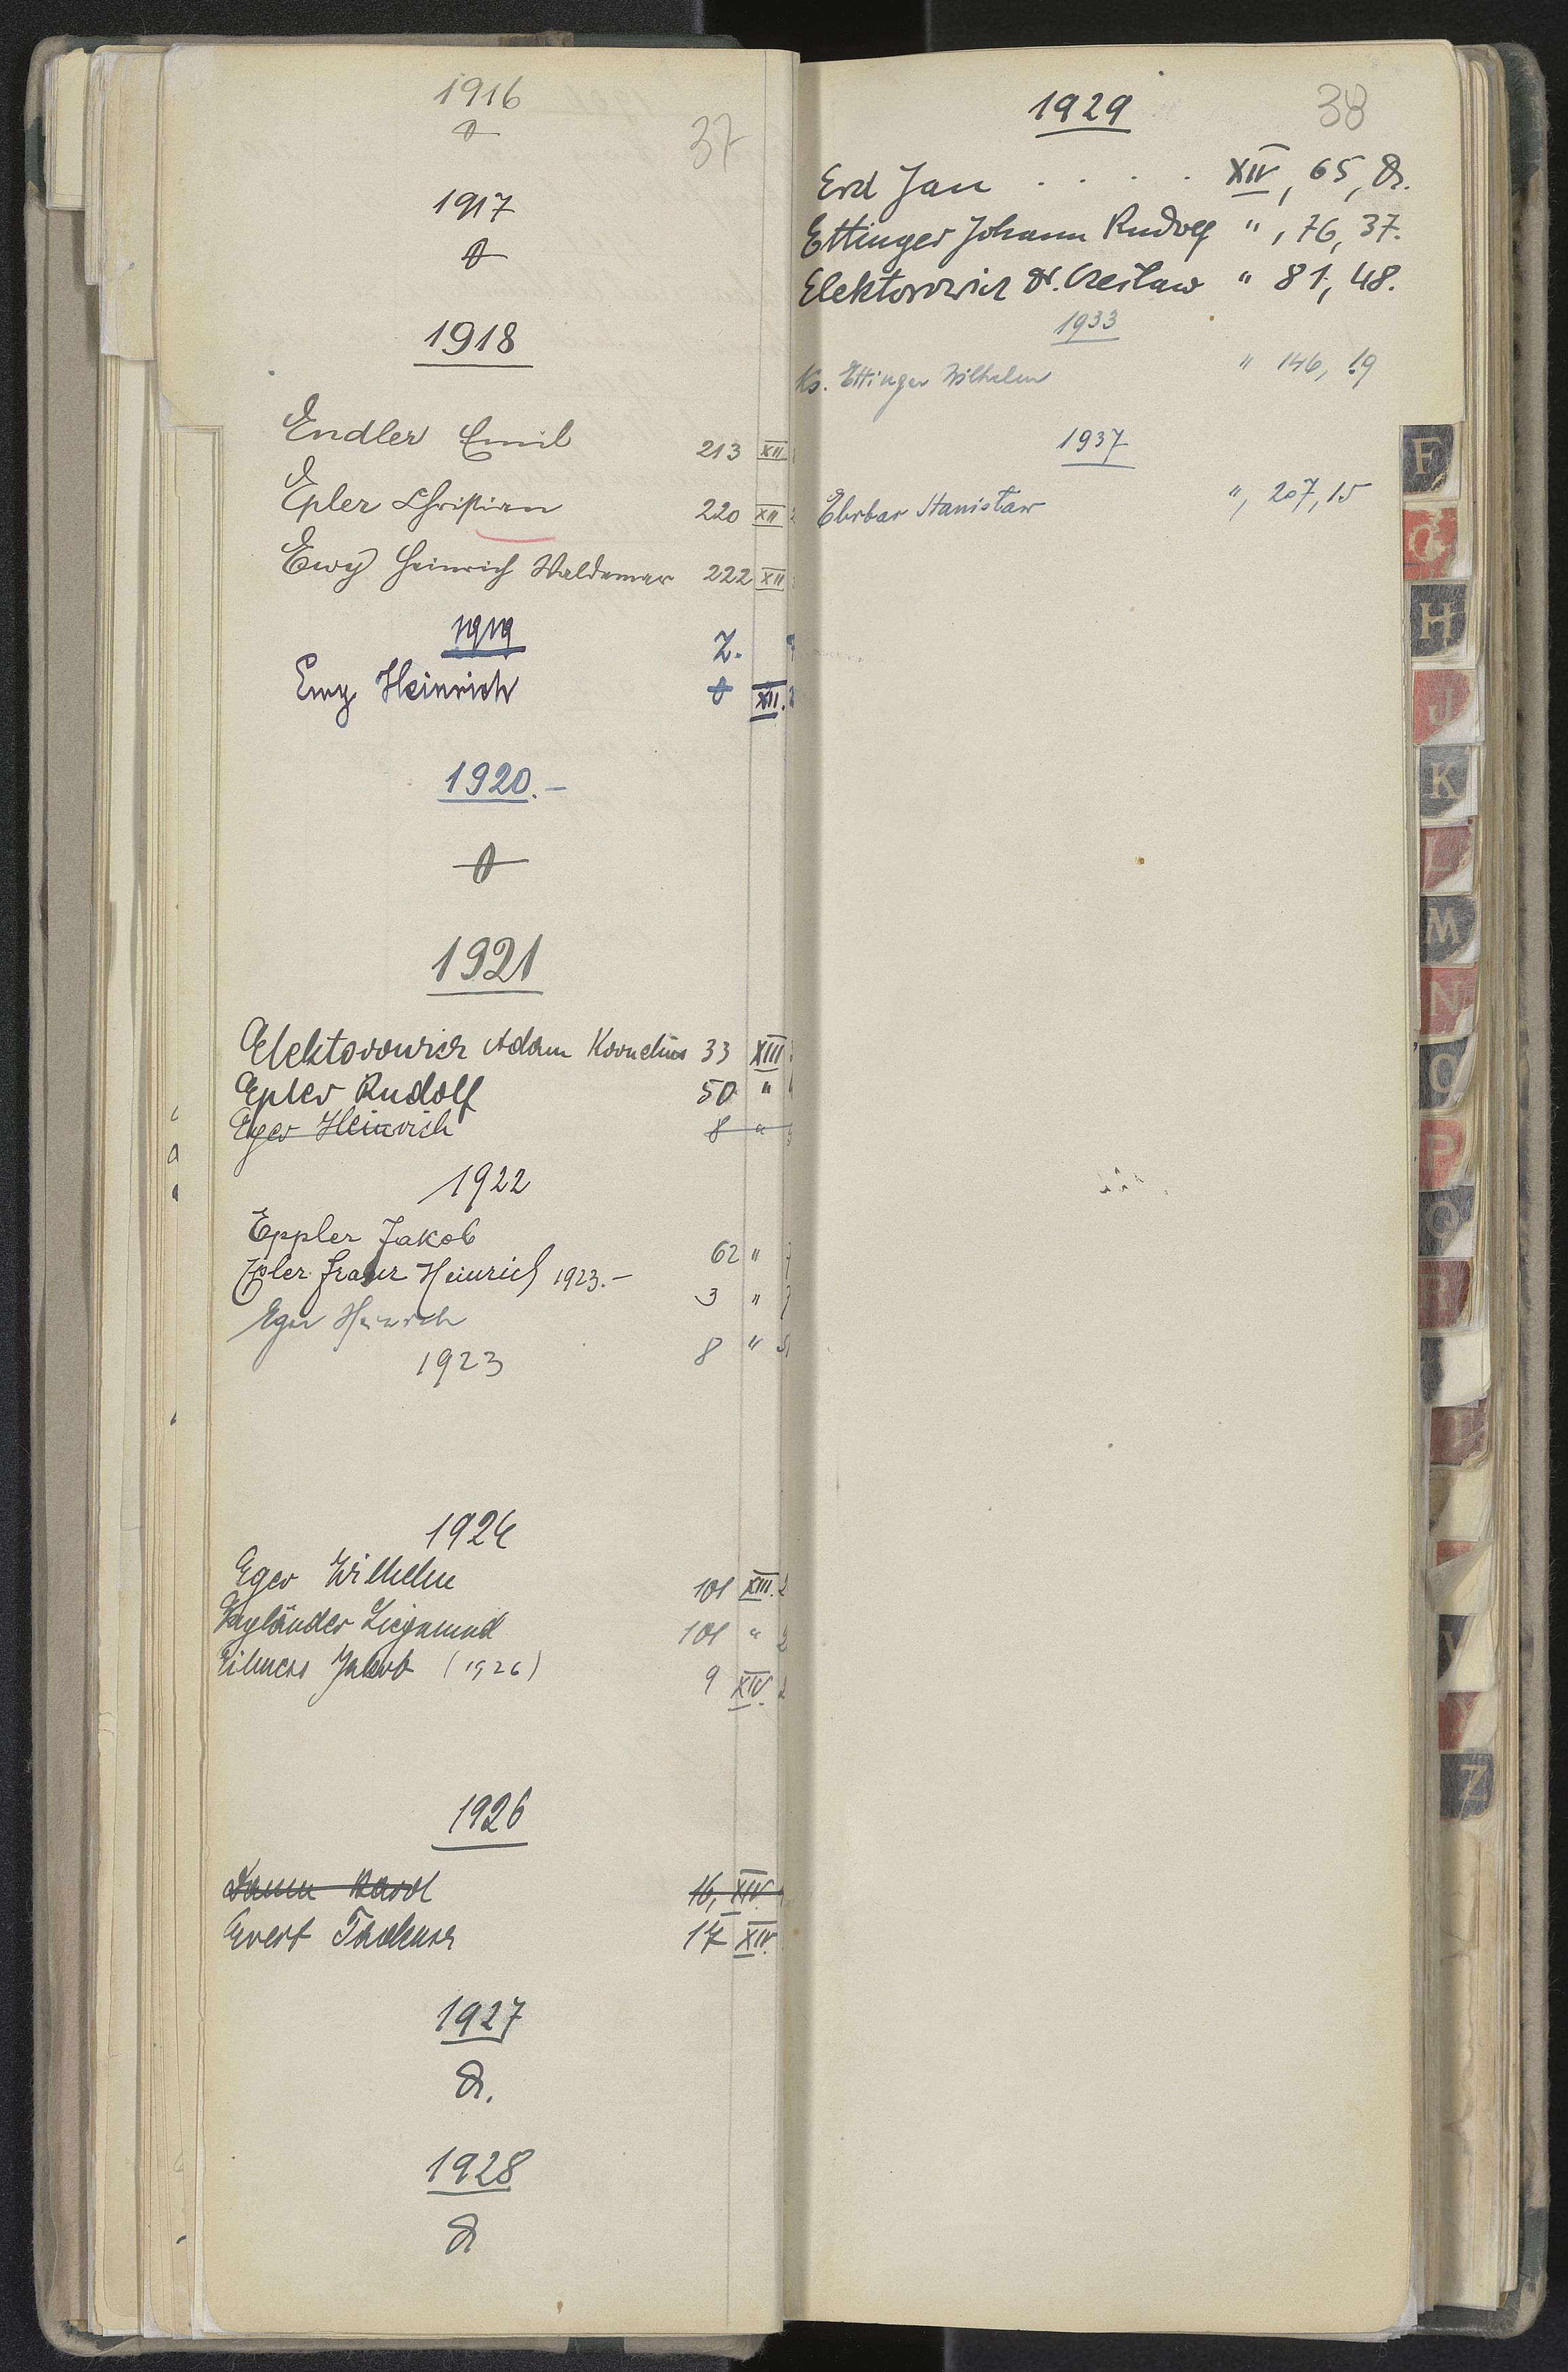 1916
37
1917
1918
Endler Emil 213 XII
Epler Christian 220 XII
Ewy Heinrich Waldemar 222 XII
1919 Z.
Ewy Heinrich XII.
1920.-
1921
Elektorowicz Adam Kornelius 33 XIII
Epler Rudolf 50 "
Eger Heinrich 8 "
1922
Eppler Jakob 62 "
Epler Franz Heinrich 1923.- 3 "
Eger Heinrich 8 "
1923
1924
Eger Wilhelm 101 XIII.
Engländer 101 "
Jakob (1926) 9 XIV.
1926
Damm Karol 16, XIV.
Evert 17 XIV.
1927
1928
1929
38
Erd Jan . . . . XIV, 65, 8.
Ettinger Johann Rudolf ", 76, 37.
Elektorowicz Dr. Czesław " 81, 48.
1933
Ks. Ettinger Wilhelm " 146, 19
1937
Ehrbar Stanisław ", 207, 15
F
G
H
J
K
L
M
N
O
P
Q
R
Z